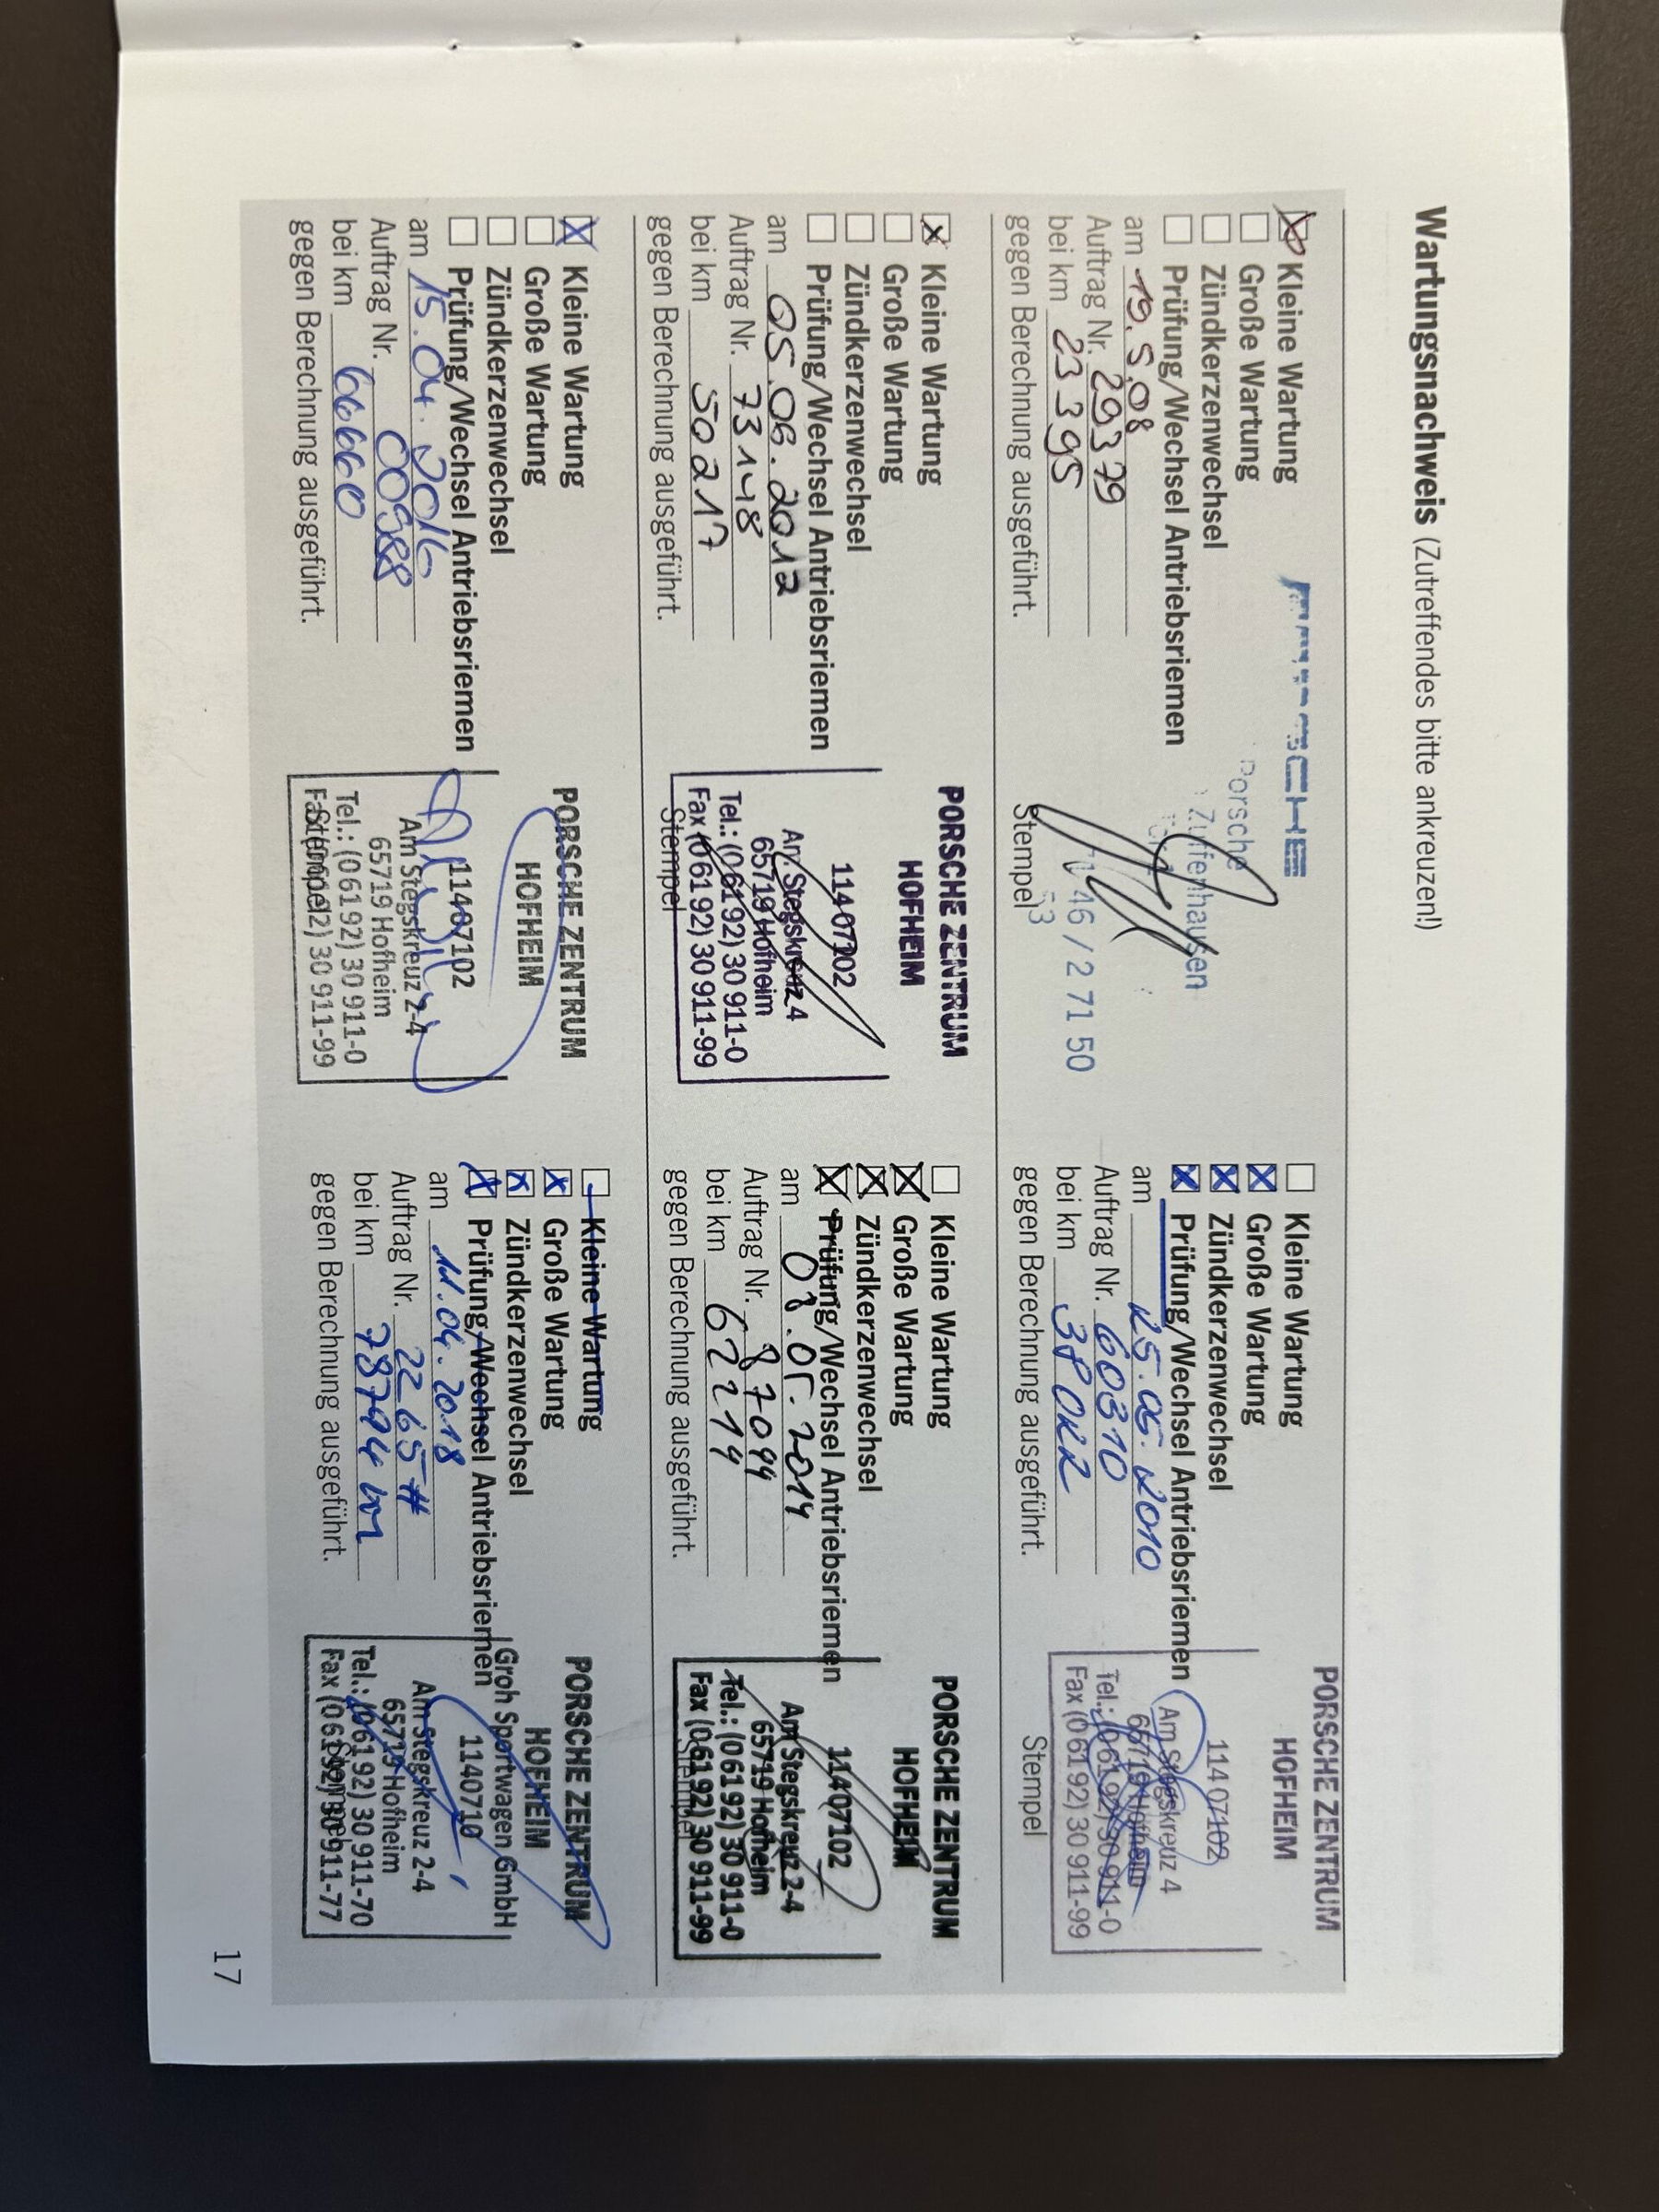 Wartungsnachweis (Zutreffendes bitte ankreuzen!)
Kleine Wartung
Große Wartung
Zündkerzenwechsel
Prüfung/Wechsel Antriebsriemen
am 19.5.08
Auftrag Nr. 29379
bei km 23395
gegen Berechnung ausgeführt.
Porsche
Zuffenhausen
46 / 2 71 50
Stempel
Kleine Wartung
Große Wartung
Zündkerzenwechsel
Prüfung/Wechsel Antriebsriemen
am 25.05.2010
Auftrag Nr. 60310
bei km 38022
gegen Berechnung ausgeführt.
PORSCHE ZENTRUM
HOFHEIM
11407102
Am Stegskreuz 4
65719 Hofheim
Tel.: (0 61 92) 30 911-0
Fax (0 61 92) 30 911-99
Stempel
Kleine Wartung
Große Wartung
Zündkerzenwechsel
Prüfung/Wechsel Antriebsriemen
am 05.06.2012
Auftrag Nr. 73148
bei km 50217
gegen Berechnung ausgeführt.
PORSCHE ZENTRUM
HOFHEIM
11407102
Am Stegskreuz 4
65719 Hofheim
Tel.: (0 61 92) 30 911-0
Fax (0 61 92) 30 911-99
Stempel
Kleine Wartung
Große Wartung
Zündkerzenwechsel
Prüfung/Wechsel Antriebsriemen
am 08.05.2014
Auftrag Nr. 87099
bei km 62219
gegen Berechnung ausgeführt.
PORSCHE ZENTRUM
HOFHEIM
11407102
Am Stegskreuz 2-4
65719 Hofheim
Tel.: (0 61 92) 30 911-0
Fax (0 61 92) 30 911-99
Stempel
Kleine Wartung
Große Wartung
Zündkerzenwechsel
Prüfung/Wechsel Antriebsriemen
am 15.04.2016
Auftrag Nr. 00988
bei km 66660
gegen Berechnung ausgeführt.
PORSCHE ZENTRUM
HOFHEIM
11407102
Am Stegskreuz 2-4
65719 Hofheim
Tel.: (0 61 92) 30 911-0
Fax (0 61 92) 30 911-99
Stempel
Kleine Wartung
Große Wartung
Zündkerzenwechsel
Prüfung/Wechsel Antriebsriemen
am 11.04.2018
Auftrag Nr. 22657
bei km 78794 km
gegen Berechnung ausgeführt.
PORSCHE ZENTRUM
HOFHEIM
Groh Sportwagen GmbH
1140710
Am Stegskreuz 2-4
65719 Hofheim
Tel.: (0 61 92) 30 911-70
Fax (0 61 92) 30 911-77
Stempel
17